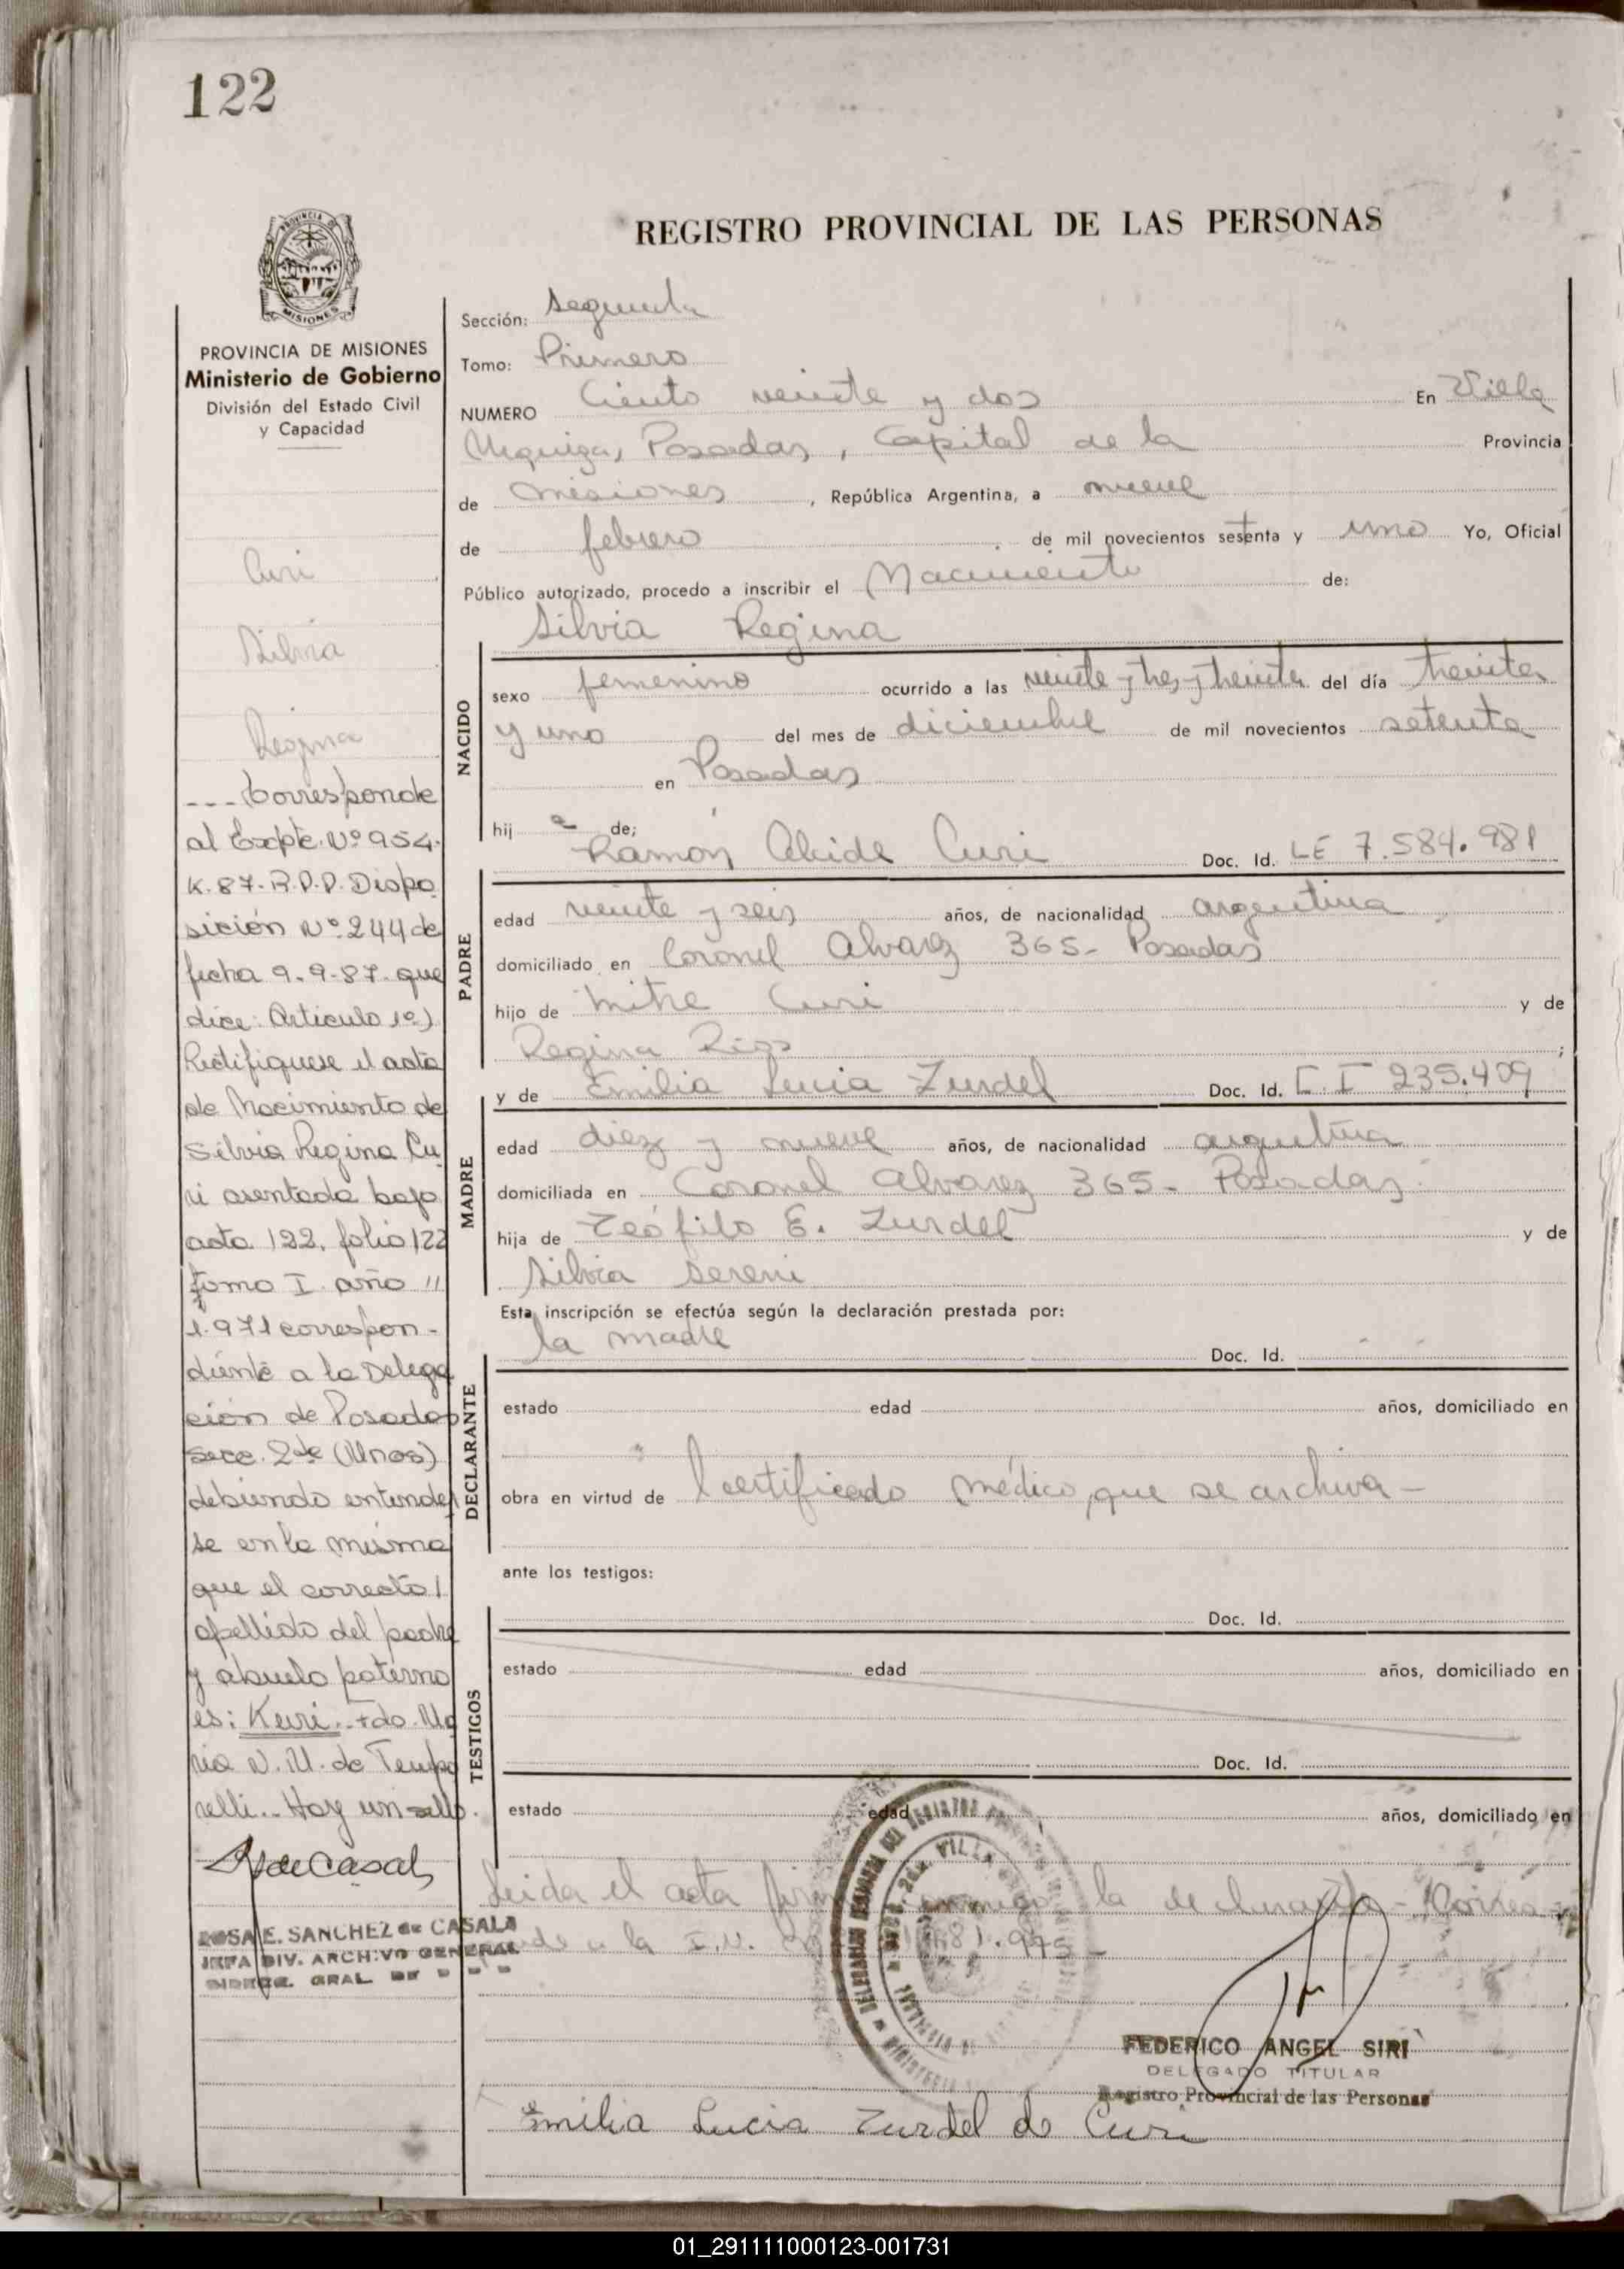 122
PROVINCIA DE
MISIONES
PROVINCIA DE MISIONES
Ministerio de Gobierno
División del Estado Civil
y Capacidad
Curi
Silvia
Regina
--- Corresponde
al Expte. Nº 954-
K-87-R.P.P. Dispo
sición Nº 244 de
fecha 9-9-87- que
dice: Articulo 1º)
Rectifiquese el acta
de Nacimiento de
Silvia Regina Cu
ri asentada bajo
acta 122, folio 122
tomo I año "
1.971 correspon-
diente a la Delega
ción de Posadas
Secc. 2da (Unos)
debiendo entender
se en la misma
que el correcto
apellido del padre
y abuelo paterno
es: Keuri.- Fdo. Ma
ria N. M. de Tempo
relli.- Hay un sello.
ROSA E. SANCHEZ de CASALS
JEFA DIV. ARCHIVO GENERAL
DIREC. GRAL DE
REGISTRO PROVINCIAL DE LAS PERSONAS
Sección: Segunda
Tomo: Primero
NUMERO Ciento veinte y dos En Villa
Urquiza, Posadas, Capital de la Provincia
de Misiones, República Argentina, a nueve
de febrero de mil novecientos setenta y uno Yo, Oficial
Público autorizado, procedo a inscribir el Nacimiento de:
Silvia Regina
NACIDO
sexo femenino ocurrido a las veinte y tres y treinta del día treinta
y uno del mes de diciembre de mil novecientos setenta
en Posadas
hij a de;
Ramón Alcide Curi Doc. Id. LE 7.584.981
PADRE
edad veinte y seis años, de nacionalidad argentina
domiciliado en Coronel Alvarez 365- Posadas
hijo de Mitre Curi y de
Regina Rios ;
y de Emilia Lucia Zurdel Doc. Id. C.I 235.409
MADRE
edad diez y nueve años, de nacionalidad argentina
domiciliada en Coronel Alvarez 365- Posadas
hija de Teófilo E. Zurdel y de
Silvia Sereni
Esta inscripción se efectúa según la declaración prestada por:
la madre Doc. Id.
DECLARANTE
estado edad años, domiciliado en
obra en virtud de certificado médico, que se archiva-
ante los testigos:
Doc. Id.
TESTIGOS
estado edad años, domiciliado en
Doc. Id.
estado edad años, domiciliado en
Leida el acta conmigo la declarante- Corres-
ponde a la I.N. 81.995-
FEDERICO ANGEL SIRI
DELEGADO TITULAR
Registro Provincial de las Personas
Emilia Lucia Zurdel de Curi
01_291111000123-001731